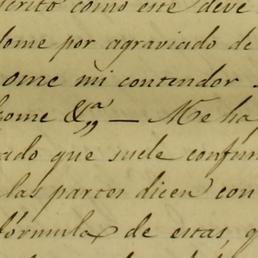 scrito como este deve
dome por agraviado de
ome mi contendor.
come &ª„ — Me ha
ado que suele confun
las partes dicen con
fórmula de estas, q